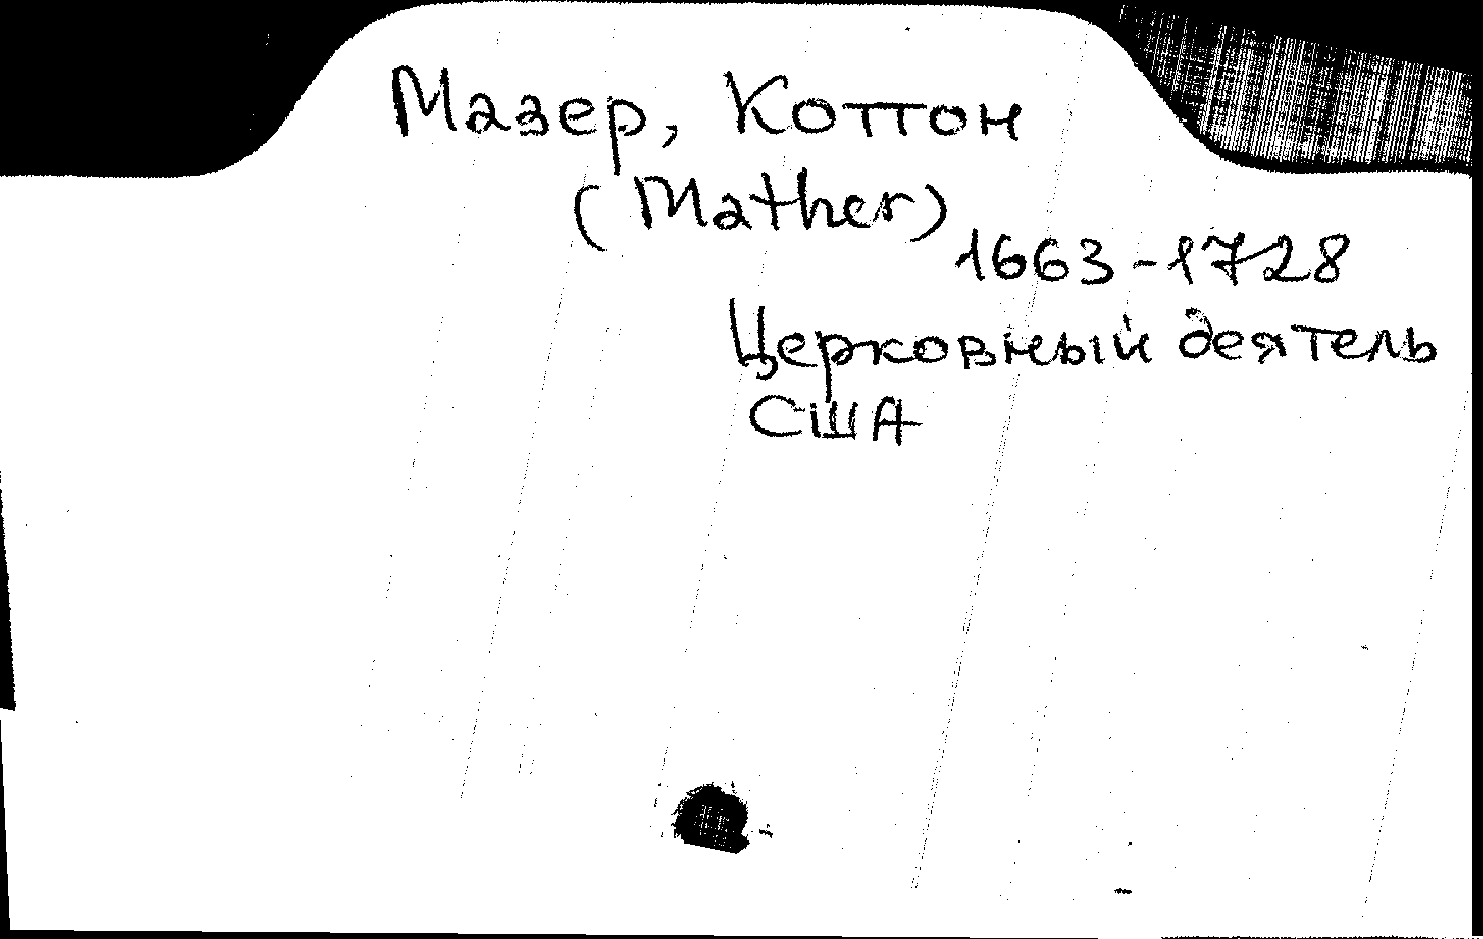 Мазер, Коттон
(Mather)
1663-1728
Церковный деятель
США